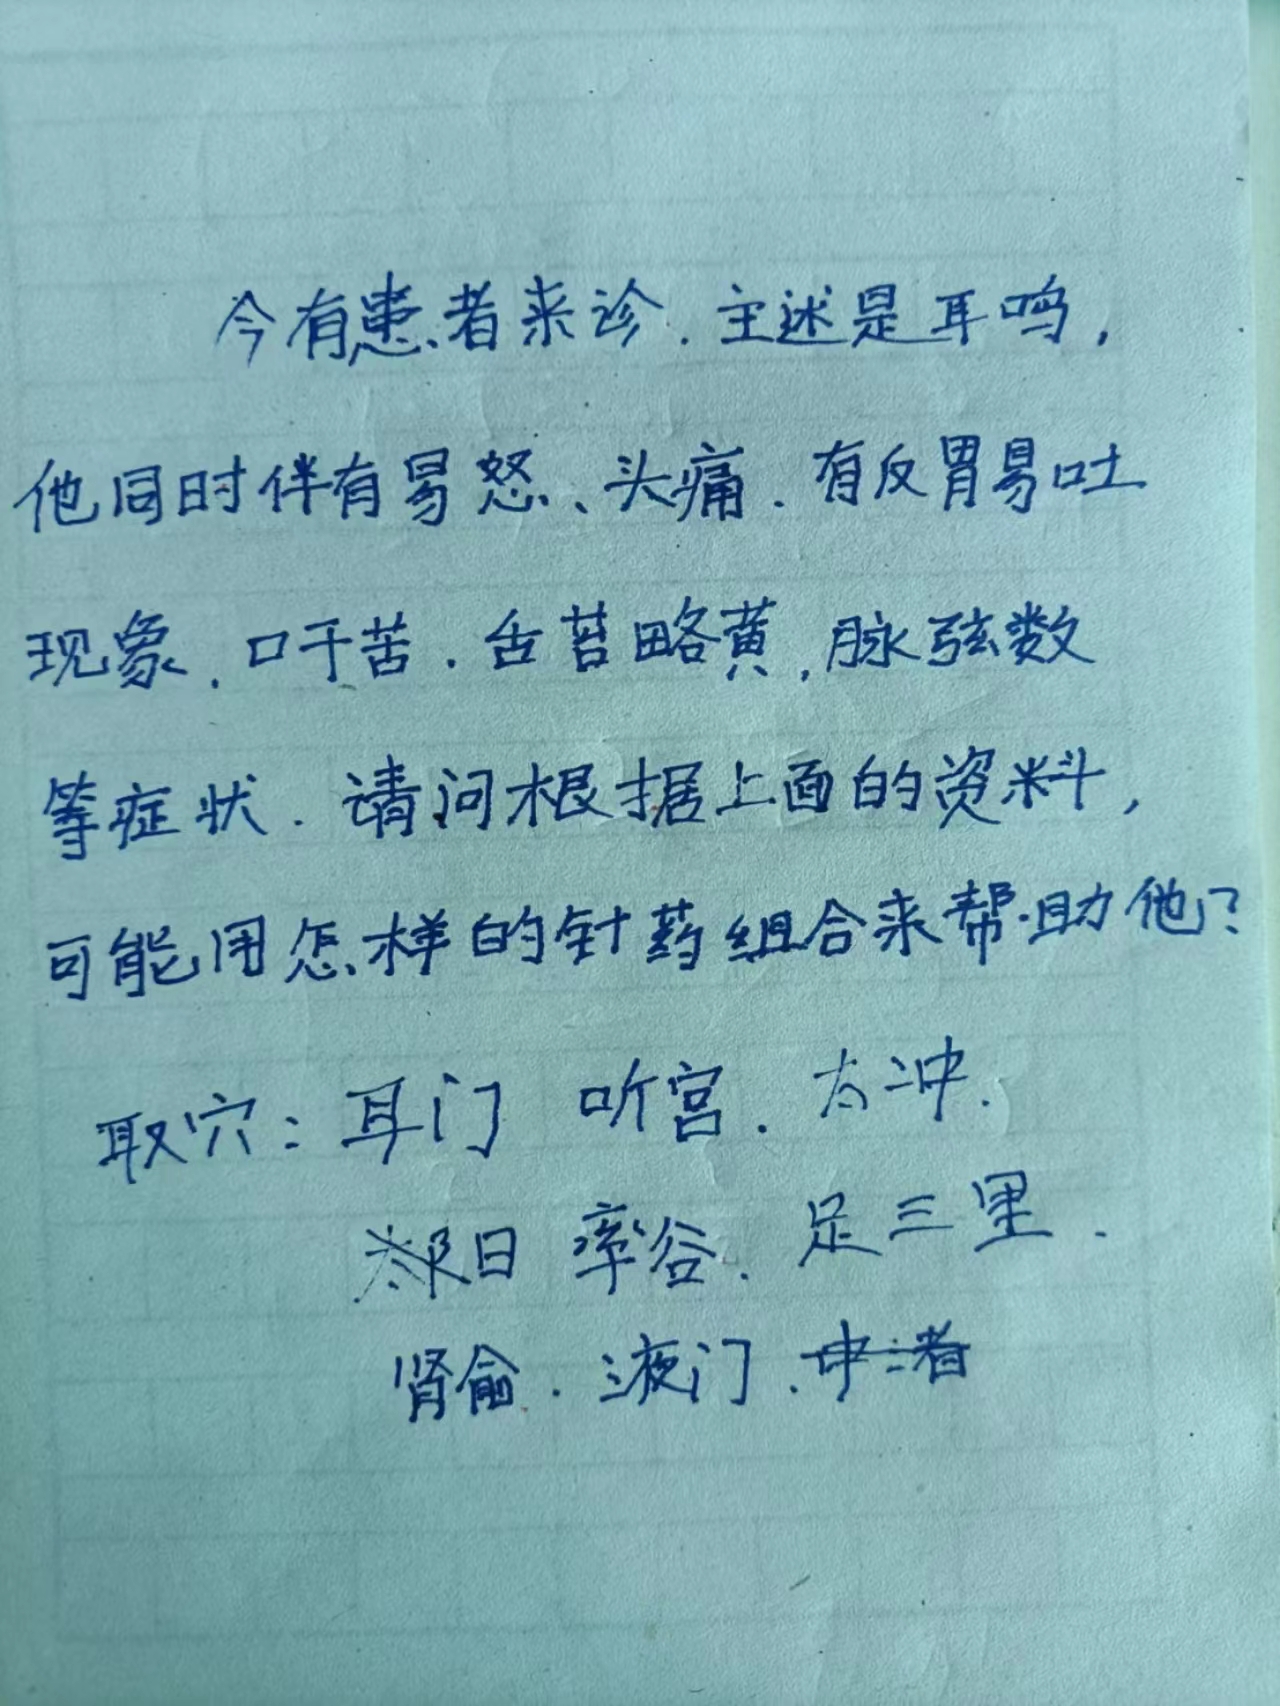 今有患者来诊.主述是耳鸣,
他同时伴有易怒、头痛.有反胃易吐
现象.口干苦.舌苔略黄,脉弦数
等症状.请问根据上面的资料,
可能用怎样的针药组合来帮助他?
取穴:耳门 听宫.太冲.
日 率谷.足三里.
肾俞.液门.中渚